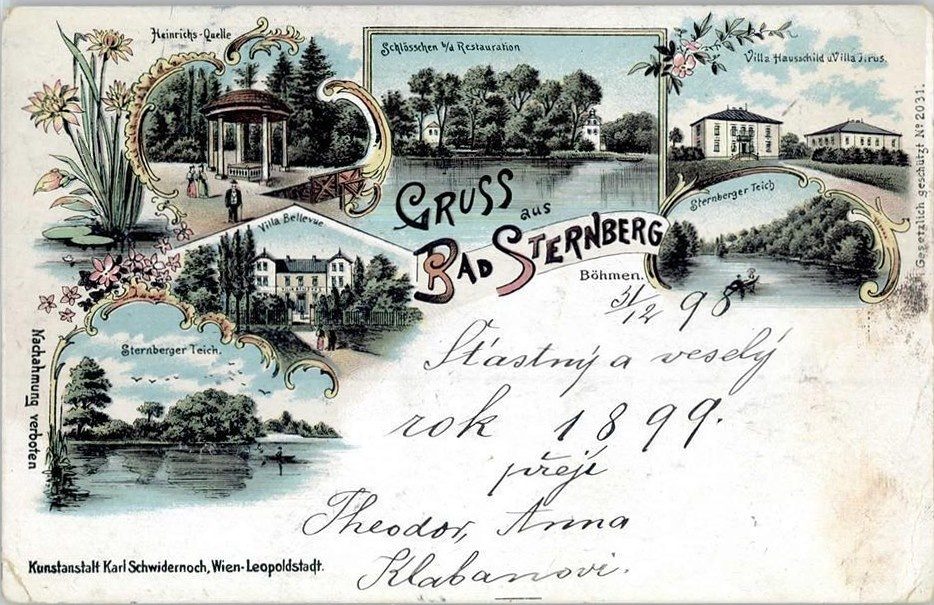 Heinrichs-Quelle
Schlösschen b/d Restauration
Villa Hausschild u Villa Jirus.
Gesetzlich geschützt No 2031.
Sternberger Teich
Villa Bellevue
GRUSS
aus
BAD STERNBERG
Böhmen.
31/12 98
Sternberger Teich.
Nachahmung verboten
Šťastný a veselý
rok 1899.
přejí
Theodor, Anna
Klabanovi.
Kunstanstalt Karl Schwidernoch, Wien-Leopoldstadt.